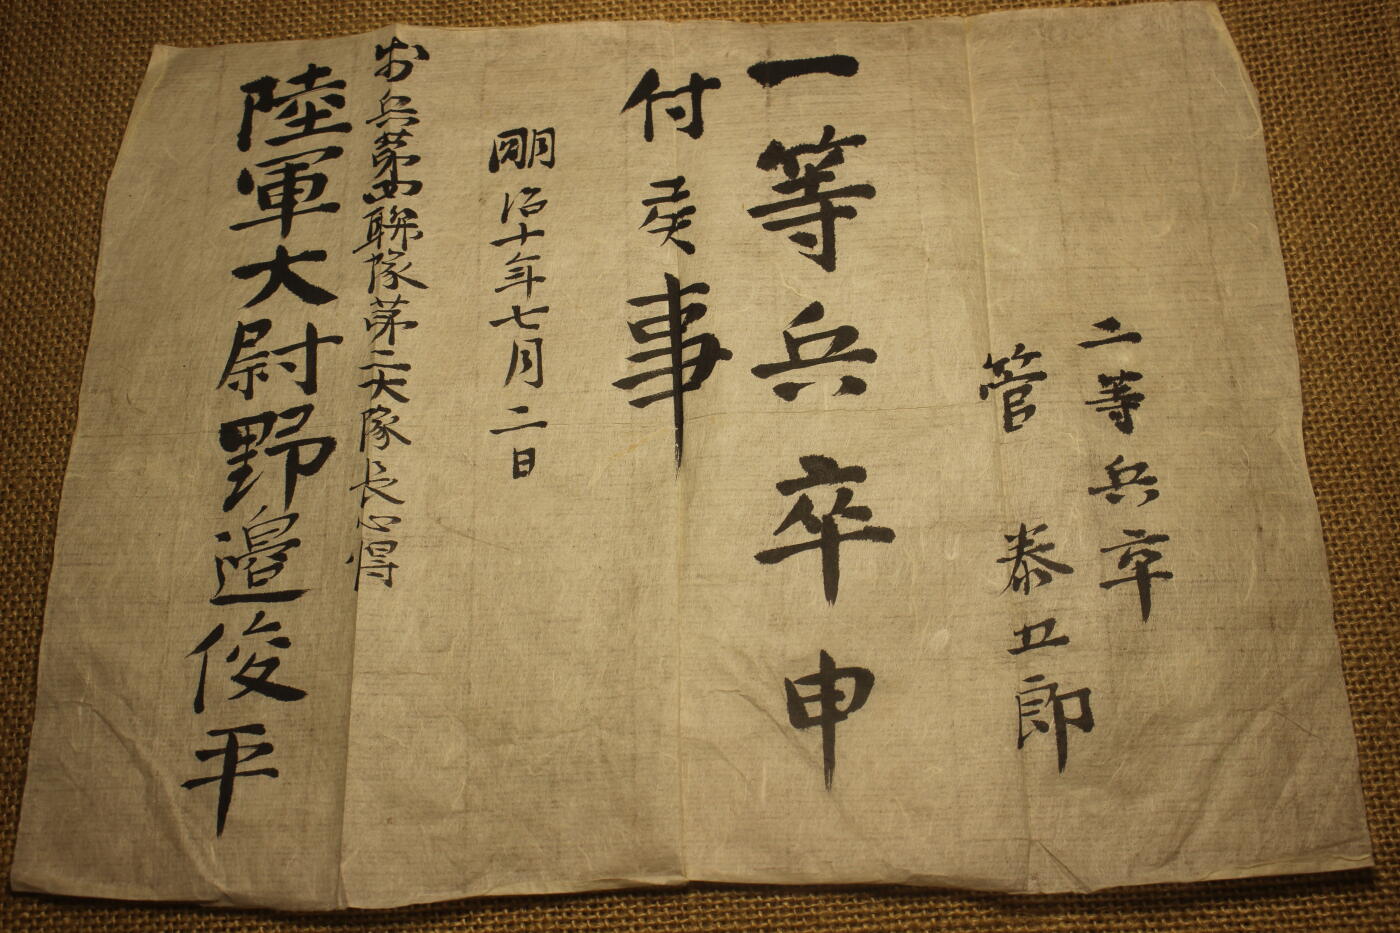 二等兵卒
菅 泰五郎
一等兵卒申
付候事
明治十年七月二日
歩兵第四聯隊第二大隊長心得
陸軍大尉野邉俊平